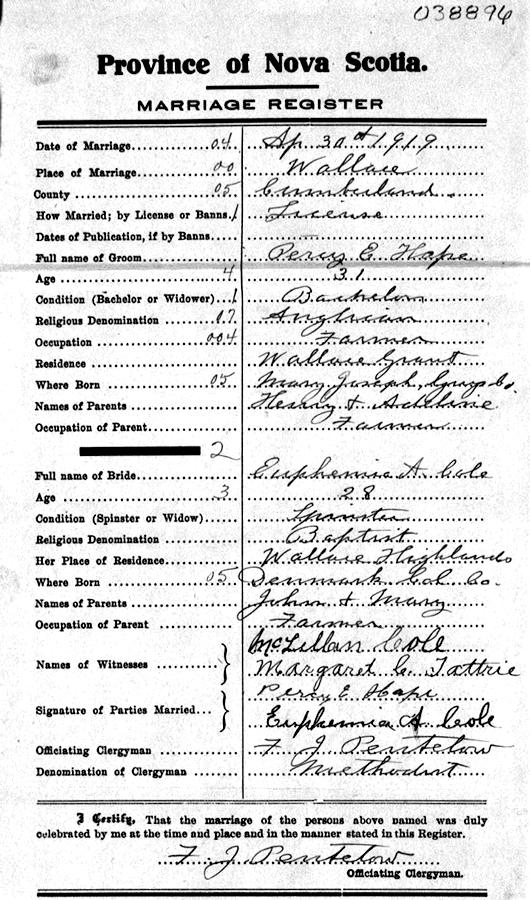 038896
Province of Nova Scotia.
MARRIAGE REGISTER
Date of Marriage 04 Ap. 30th 1919
Place of Marriage 00 Wallace
County 05 Cumberland.
How Married; by License or Banns 1 License
Dates of Publication, if by Banns
Full name of Groom Percy E. Hape
Age 4 31
Condition (Bachelor or Widower) 1 Bachelor
Religious Denomination 07 Anglican
Occupation 004 Farmer
Residence Wallace Grant
Where Born 05 Mary Joseph, Guys Co.
Names of Parents Henry & Adeline
Occupation of Parent Farmer
2
Full name of Bride Euphemia A Cole
Age 3 28
Condition (Spinster or Widow) Spinster
Religious Denomination Baptist
Her Place of Residence Wallace Highlands
Where Born 05 Denmark Col. Co.
Names of Parents John & Mary
Occupation of Parent Farmer
Names of Witnesses McLellan Cole
Margaret C. Tattrie
Signature of Parties Married Percy E Hape
Euphemia A Cole
Officiating Clergyman F J Pentelow
Denomination of Clergyman Methodist
I Certify, That the marriage of the persons above named was duly
celebrated by me at the time and place and in the manner stated in this Register.
F. J. Pentelow
Officiating Clergyman.